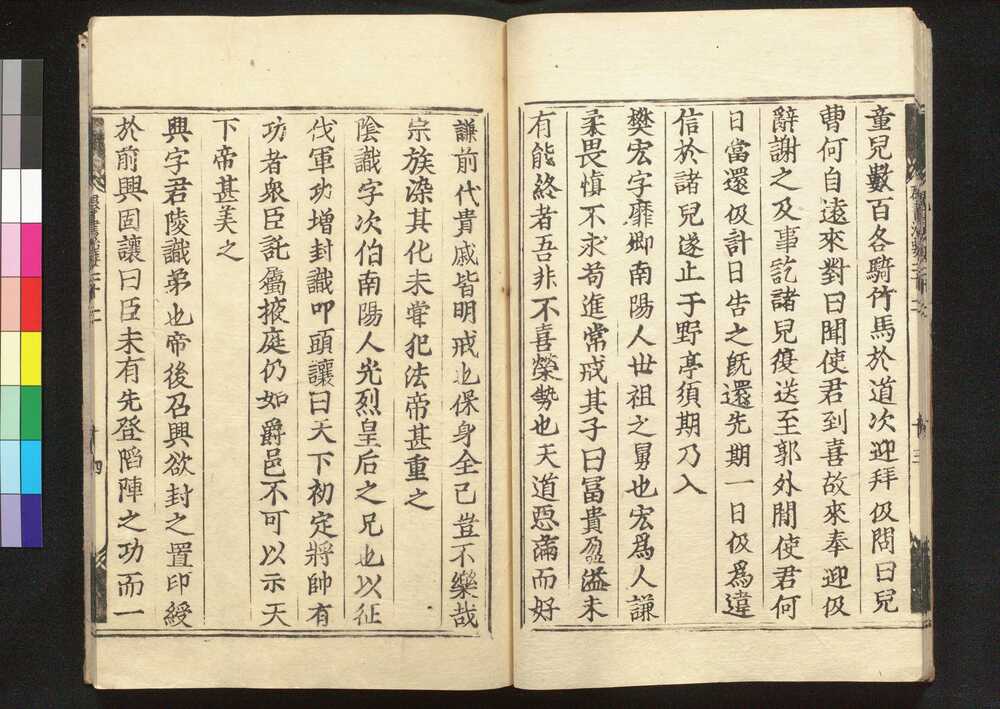 童兒數百各騎竹馬於道次迎拜伋問曰兒
曹何自遠來對曰聞使君到喜故來奉迎伋
辭謝之及事訖諸兒復送至郭外問使君何
日當還伋計日告之旣還先期一日伋爲違
信於諸兒遂止于野亭須期乃入
樊宏字靡卿南陽人世祖之舅也宏爲人謙
柔畏愼不求苟進常戒其子曰冨貴盈溢未
有能終者吾非不喜榮勢也天道惡滿而好
謙前代貴戚皆明戒也保身全己豈不樂哉
宗族染其化未甞犯法帝甚重之
陰識字次伯南陽人光烈皇后之兄也以征
伐軍功增封識叩頭讓曰天下初定將帥有
功者衆臣託屬掖庭仍加爵邑不可以示天
下帝甚美之
興字君陵識弟也帝後召興欲封之置印綬
於前興固讓曰臣未有先登陷陣之功而一